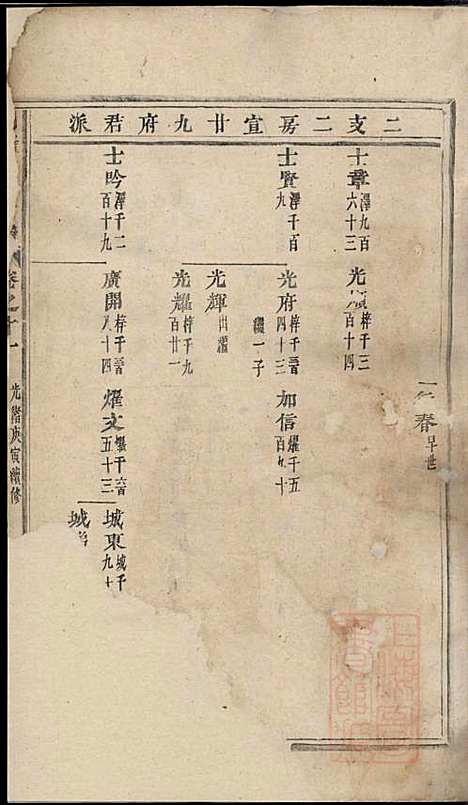 二支二房宣廿九府君派
一
春早世
士章澤九百六十三
光 梓千三百十四
士賢澤千百九
光府梓千百四十三
繼一子
加信燿千五百九十
光輝出繼
光耀梓千九百廿一
士吟澤千二百十九
廣開梓千百八十四
燿文燿千六百五十三
城東城千九十
城
卷之十一
光緒庚寅續修